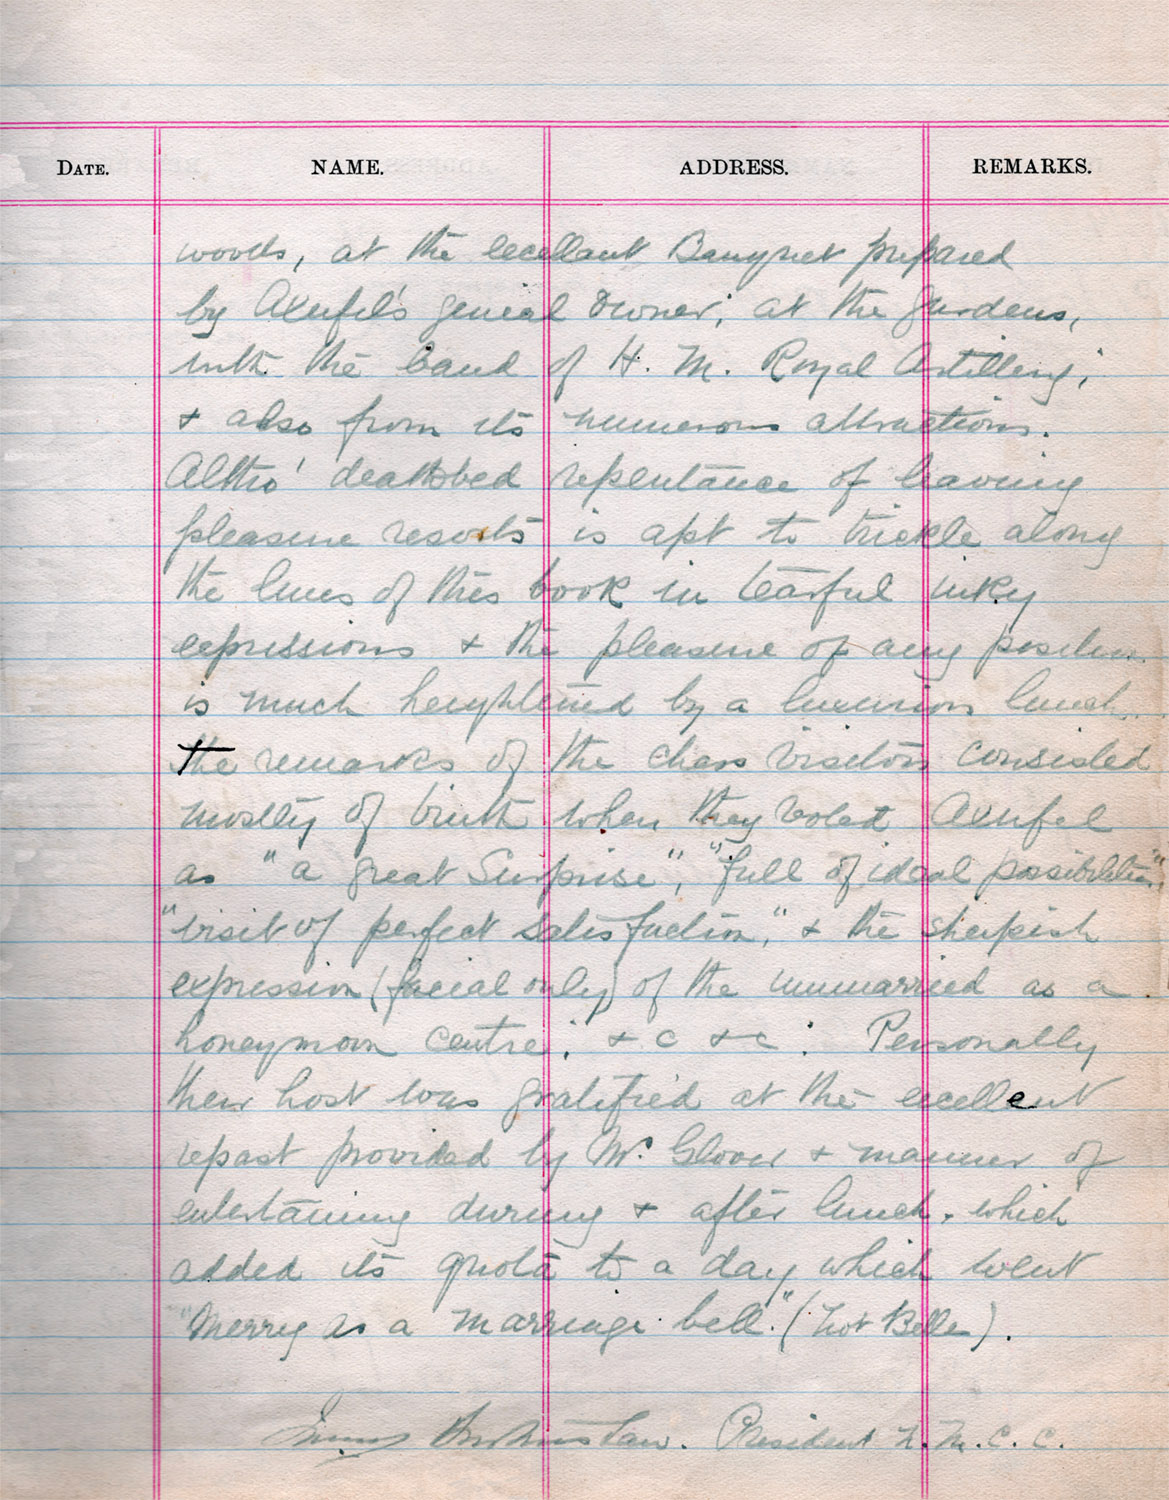 DATE. NAME. ADDRESS. REMARKS.
woods, at the excellant Banquet prepared
by Axenfel's genial owner, at the gardens,
with the band of H. M. Royal Artillery,
& also from its numerous attractions.
Altho' deathbed repentance of leaving
pleasure resorts is apt to trickle along
the lines of this book in tearful inky
expressions & the pleasure of any position
is much heightened by a luxurious lunch.
The remarks of the chess visitors consisted
mostly of truth when they voted Axenfel
as "a great Surprise", "full of ideal possibilities,"
"visit of perfect satisfaction," & the sheepish
expression (facial only) of the unmarried as a
honeymoon centre; &c &c. Personally
their host was gratified at the excellent
repast provided by Mr. Glover & manner of
entertaining during & after lunch. which
added its quota to a day which went
"Merry as a marriage bell." (not Belle).
President M. C. C.